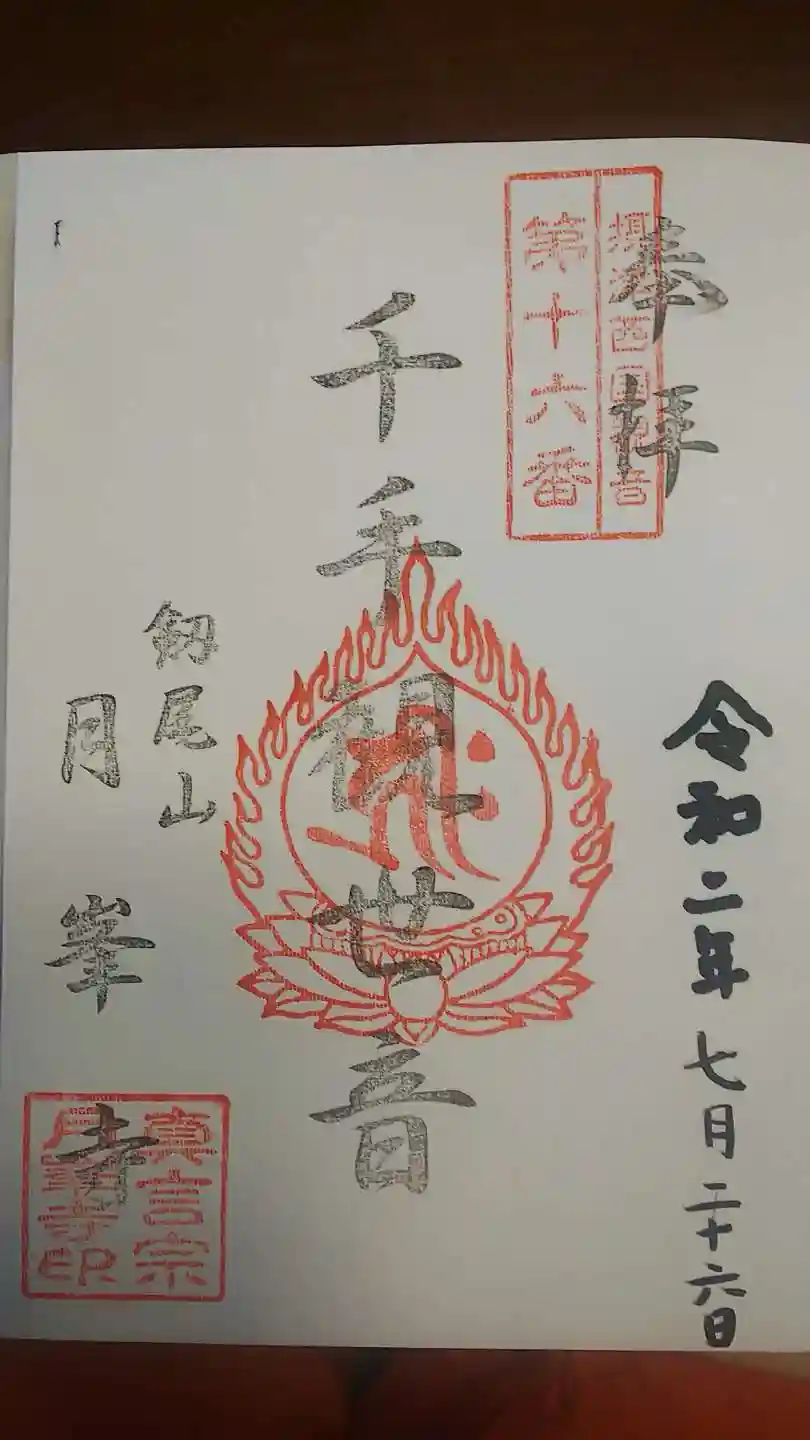 奉拝
摂津西国観音
第十六番
令和二年七月二十六日
千手観世音
剱尾山
月峯寺
真言宗
月峯寺印